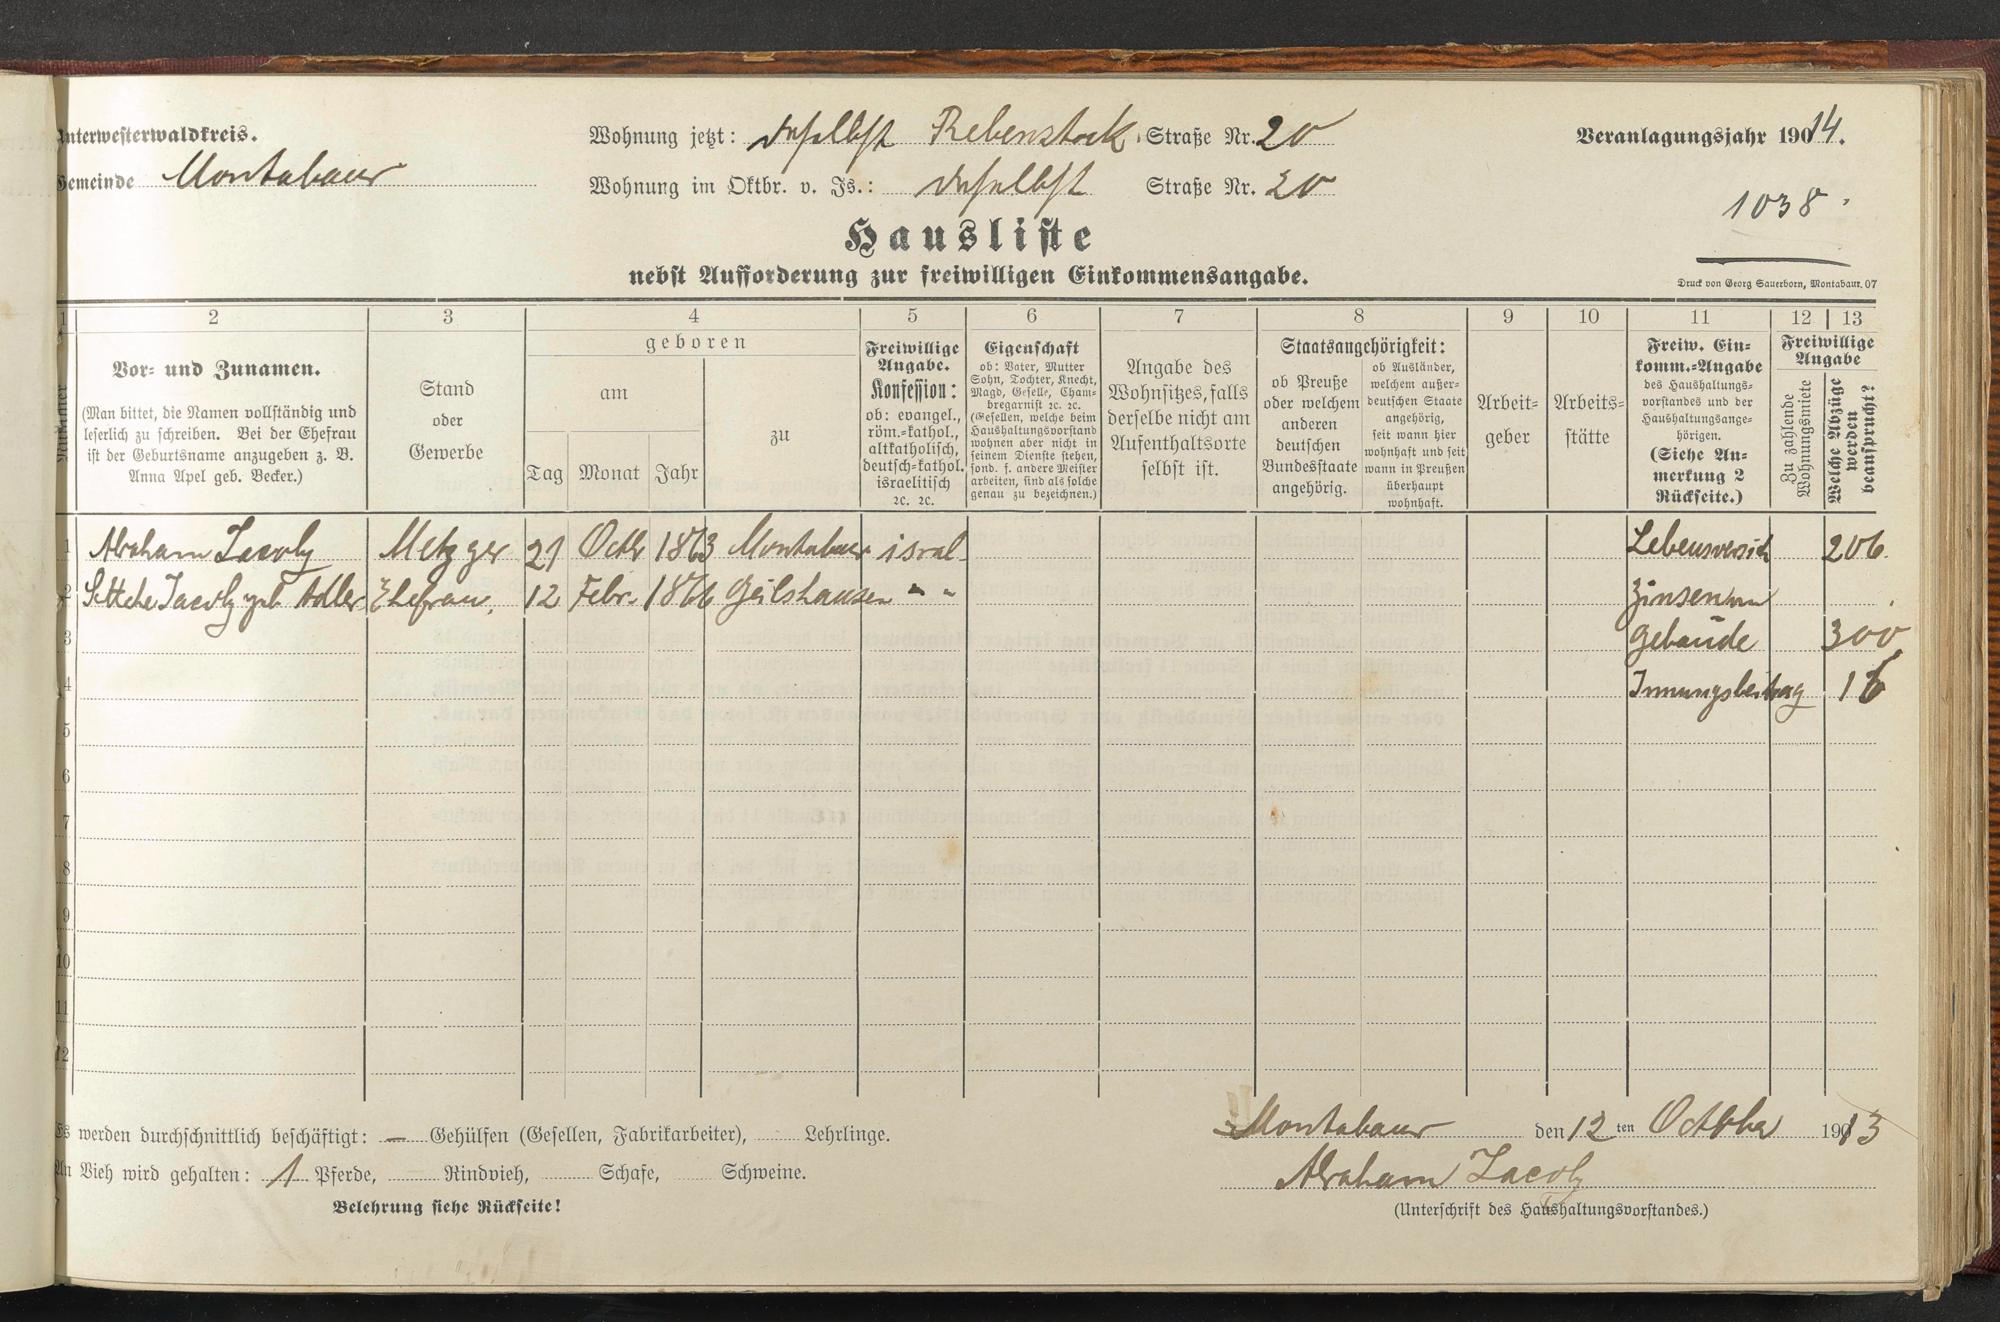 Unterwesterwaldkreis.
Gemeinde Montabaur
Wohnung jetzt: daselbst Rebenstock Straße Nr. 20
Wohnung im Oktbr. v. Js.: daselbst Straße Nr. 20
Veranlagungsjahr 1914.
1038.
Hausliste
nebst Aufforderung zur freiwilligen Einkommensangabe.
Druck von Georg Sauerborn, Montabaur. 07
1 2 3 4 5 6 7 8 9 10 11 12 13
Nummer
Vor- und Zunamen.
(Man bittet, die Namen vollständig und
leserlich zu schreiben. Bei der Ehefrau
ist der Geburtsname anzugeben z. B.
Anna Apel geb. Becker.)
Stand
oder
Gewerbe
geboren
am
Tag Monat Jahr
zu
Freiwillige
Angabe.
Konfession:
ob: evangel.,
röm.-kathol.,
altkatholisch,
deutsch-kathol.
israelitisch
ꝛc. ꝛc.
Eigenschaft
ob: Vater, Mutter
Sohn, Tochter, Knecht,
Magd, Geselle, Cham-
bregarnist ꝛc. ꝛc.
(Gesellen, welche beim
Haushaltungsvorstand
wohnen aber nicht in
seinem Dienste stehen,
sond. f. andere Meister
arbeiten, sind als solche
genau zu bezeichnen.)
Angabe des
Wohnsitzes, falls
derselbe nicht am
Aufenthaltsorte
selbst ist.
Staatsangehörigkeit:
ob Preuße
oder welchem
anderen
deutschen
Bundesstaate
angehörig.
ob Ausländer,
welchem außer-
deutschen Staate
angehörig,
seit wann hier
wohnhaft und seit
wann in Preußen
überhaupt
wohnhaft.
Arbeit-
geber
Arbeits-
stätte
Freiw. Ein-
komm.-Angabe
des Haushaltungs-
vorstandes und der
Haushaltungsange-
hörigen.
(Siehe An-
merkung 2
Rückseite.)
Freiwillige
Angabe
Zu zahlende
Wohnungsmiete
Welche Abzüge
werden
beansprucht?
1 Abraham Jacoby Metzger 21 Octbr 1863 Montabaur isral. Lebensversich 206.
2 Settche Jacoby geb. Adler Ehefrau. 12 Febr. 1866 Geilshausen " " Zinsen von
3 Gebäude 300
4 Innungsbeitrag 16
5
6
7
8
9
10
11
12
Es werden durchschnittlich beschäftigt: — Gehülfen (Gesellen, Fabrikarbeiter), Lehrlinge.
An Vieh wird gehalten: 1 Pferde, Rindvieh, Schafe, Schweine.
Belehrung siehe Rückseite!
Montabaur den 12ten October 1913
Abraham Jacoby
(Unterschrift des Haushaltungsvorstandes.)